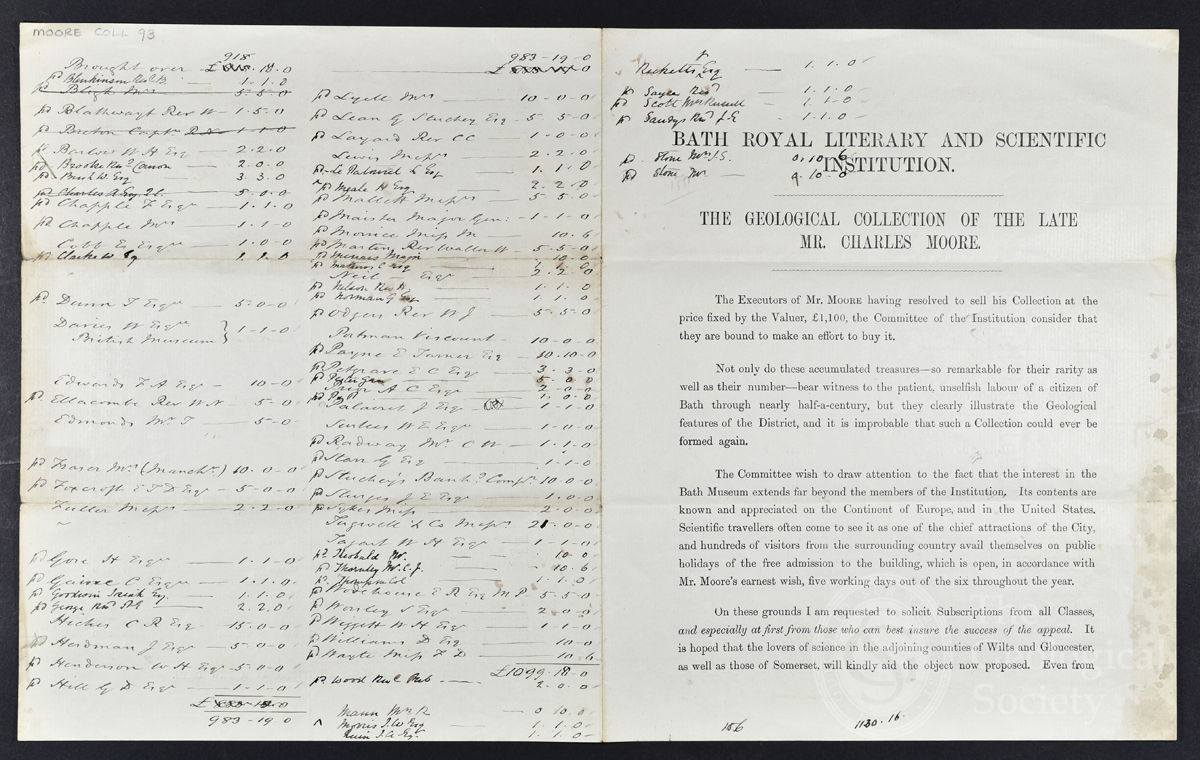 MOORE COLL 93
918
Brought over £ 18.0
pd Blenkinson Revd B. 1-1-0
pd Bligh Mrs 5-5-0
pd Blathwayt Rev W 1-5-0
pd Breton Captn R.N 1-1-0
pd Barlow W H Esq 2.2.0
pd Brooke Revd Canon 2.0.0
pd Bush W. Esq 3.3.0
pd Charles R Esq 5.0.0
pd Chapple F Esqr 1.1.0
pd Chapple Mrs 1-1-0
Cobb E Esqr 1.0.0
pd Clarke W Esq 1.1.0
pd Dunn T Esqr 5-0-0
Davies W Esqre } 1-1-0
British Museum
Edwards F A Esqr 10-0
pd Ellacombe Rev W N 5-0
Edmonds Mr T 5-0
pd Fraser Mrs (Manchr) 10.0-0
pd Foxcroft E T D Esqr 5-0-0
Fuller Messrs 2-2.0
pd Gore H Esqr 1.1.0
pd Gairne C Esqr 1-1.0
pd Goodwin Isaiah Esq 1.1.0
pd George Revd P.E 2.2.0
Hicks C R Esqr 15.0-0
pd Herdman J Esqr 5-0-0
pd Henderson W H Esqr 5-0-0
pd Hill G D Esqr 1-1-0
£
983-19.0
983-19-0
£
pd Lyell Mrs 10-0-0
pd Lean G Stuckey Esq 5.5-0
pd Layard Rev CC 1-0-0
Lewis Messrs 2.2.0
pd Le Palavicel L Esq 1.1.0
Meale H Esq 2.2.0
pd Mallett Messrs 5-5.0
pd Maister Major Genl 1-1.0
pd Monice Miss M 10.6
pd Martin Rev Walter W 5.5-0
pd Menars Major 10.0
pd Mathews C Esq
Neil Esqr 2.2.0
pd Nelson Revd H. 1.1.0
pd Norman G Esq 1.1.0
pd Odgers Rev W J 5-5.0
Portman Viscount 10-0-0
pd Payne E Turner Esq 10.10-0
pd Petgrave E C Esq 3.3-0
5-0-0
Pigou A C Esqr 2.0.0
1.0.0
pd Palairet J Esq 1-1-0
Scarles W E Esqr 1-0-0
pd Radway Mr C W 1.1.0
pd Starr G Esq 1-1.0
pd Stuckeys Bankg Compy 10.0.0
pd Sturges J E Esqr 1.0.0
pd Sykes Miss 2.0.0
Tugwell & Co Messrs 21-0-0
Tarart W H Esqr 1-1-0
pd Theobald Mr. 10.0
pd Thornley Mr C. J. 10.6
pd Thompson Col 1.1.0
pd Wodehouse E R Esq M P 5-5.0
pd Worsley S Esqr 2.0.0
pd Weggett W H Esqr 1-1-0
pd Williams D Esq 10-0
pd Wayte Miss F D 10.6
£1099-18-0
pd Wood Revd Peb 2.0.0
Mann Mrs R 0 10.0
Morris J.W Esq 1.1.0
Ruin J.A. Esqr 1.1.0
pd
Ricketts Esq 1.1.0
pd Sayce Revd 1.1.0
pd Scott Mrs Russell 1.1.0
pd Sandys Revd J.E. 1.1.0
BATH ROYAL LITERARY AND SCIENTIFIC
INSTITUTION.
pd Stone Mrs J.S. 0.10.6
pd Stone Mr 0.10.0
THE GEOLOGICAL COLLECTION OF THE LATE
MR. CHARLES MOORE.
The Executors of Mr. MOORE having resolved to sell his Collection at the
price fixed by the Valuer, £1,100, the Committee of the Institution consider that
they are bound to make an effort to buy it.
Not only do these accumulated treasures—so remarkable for their rarity as
well as their number—bear witness to the patient, unselfish labour of a citizen of
Bath through nearly half-a-century, but they clearly illustrate the Geological
features of the District, and it is improbable that such a Collection could ever be
formed again.
The Committee wish to draw attention to the fact that the interest in the
Bath Museum extends far beyond the members of the Institution. Its contents are
known and appreciated on the Continent of Europe, and in the United States.
Scientific travellers often come to see it as one of the chief attractions of the City,
and hundreds of visitors from the surrounding country avail themselves on public
holidays of the free admission to the building, which is open, in accordance with
Mr. Moore's earnest wish, five working days out of the six throughout the year.
On these grounds I am requested to solicit Subscriptions from all Classes,
and especially at first from those who can best insure the success of the appeal. It
is hoped that the lovers of science in the adjoining counties of Wilts and Gloucester,
as well as those of Somerset, will kindly aid the object now proposed. Even from
156
1130.16
The
Geological
Society